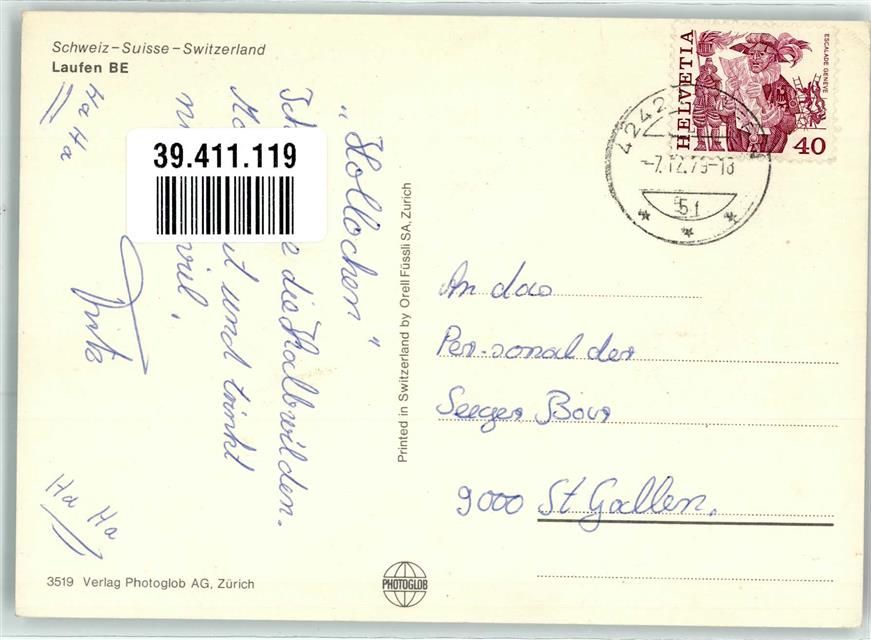 Schweiz – Suisse – Switzerland
Laufen BE
"Hollochen"
die Halbwilden.
und trinkt
viel,
Fritz
Ha Ha
Ha Ha
39.411.119
Printed in Switzerland by Orell Füssli SA, Zürich
HELVETIA
ESCALADE GENÈVE
40
4242
-7.12.79-18
An das
Personal der
Seeger Bar
9000 St Gallen.
3519 Verlag Photoglob AG, Zürich
PHOTOGLOB